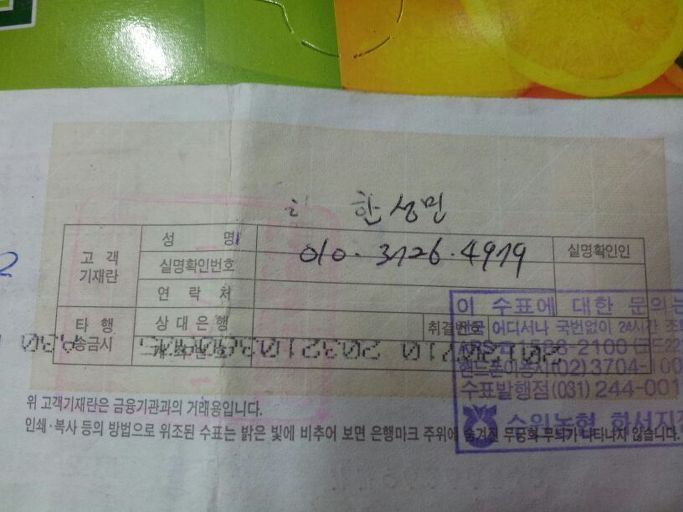 한성민
010-3126-4979
고객
기재란
성 명
실명확인번호
연 락 처
실명확인인
타 행
송금시
상 대 은 행
취결번호
이 수표에 대한 문의는
어디서나 국번없이 24시간
1588-2100
(02)3704-
수표발행점(031)244-001
수원농협 화서지점
위 고객기재란은 금융기관과의 거래용입니다.
인쇄·복사 등의 방법으로 위조된 수표는 밝은 빛에 비추어 보면 은행마크 주위에 숨겨진 무궁화 무늬가 나타나지 않습니다.